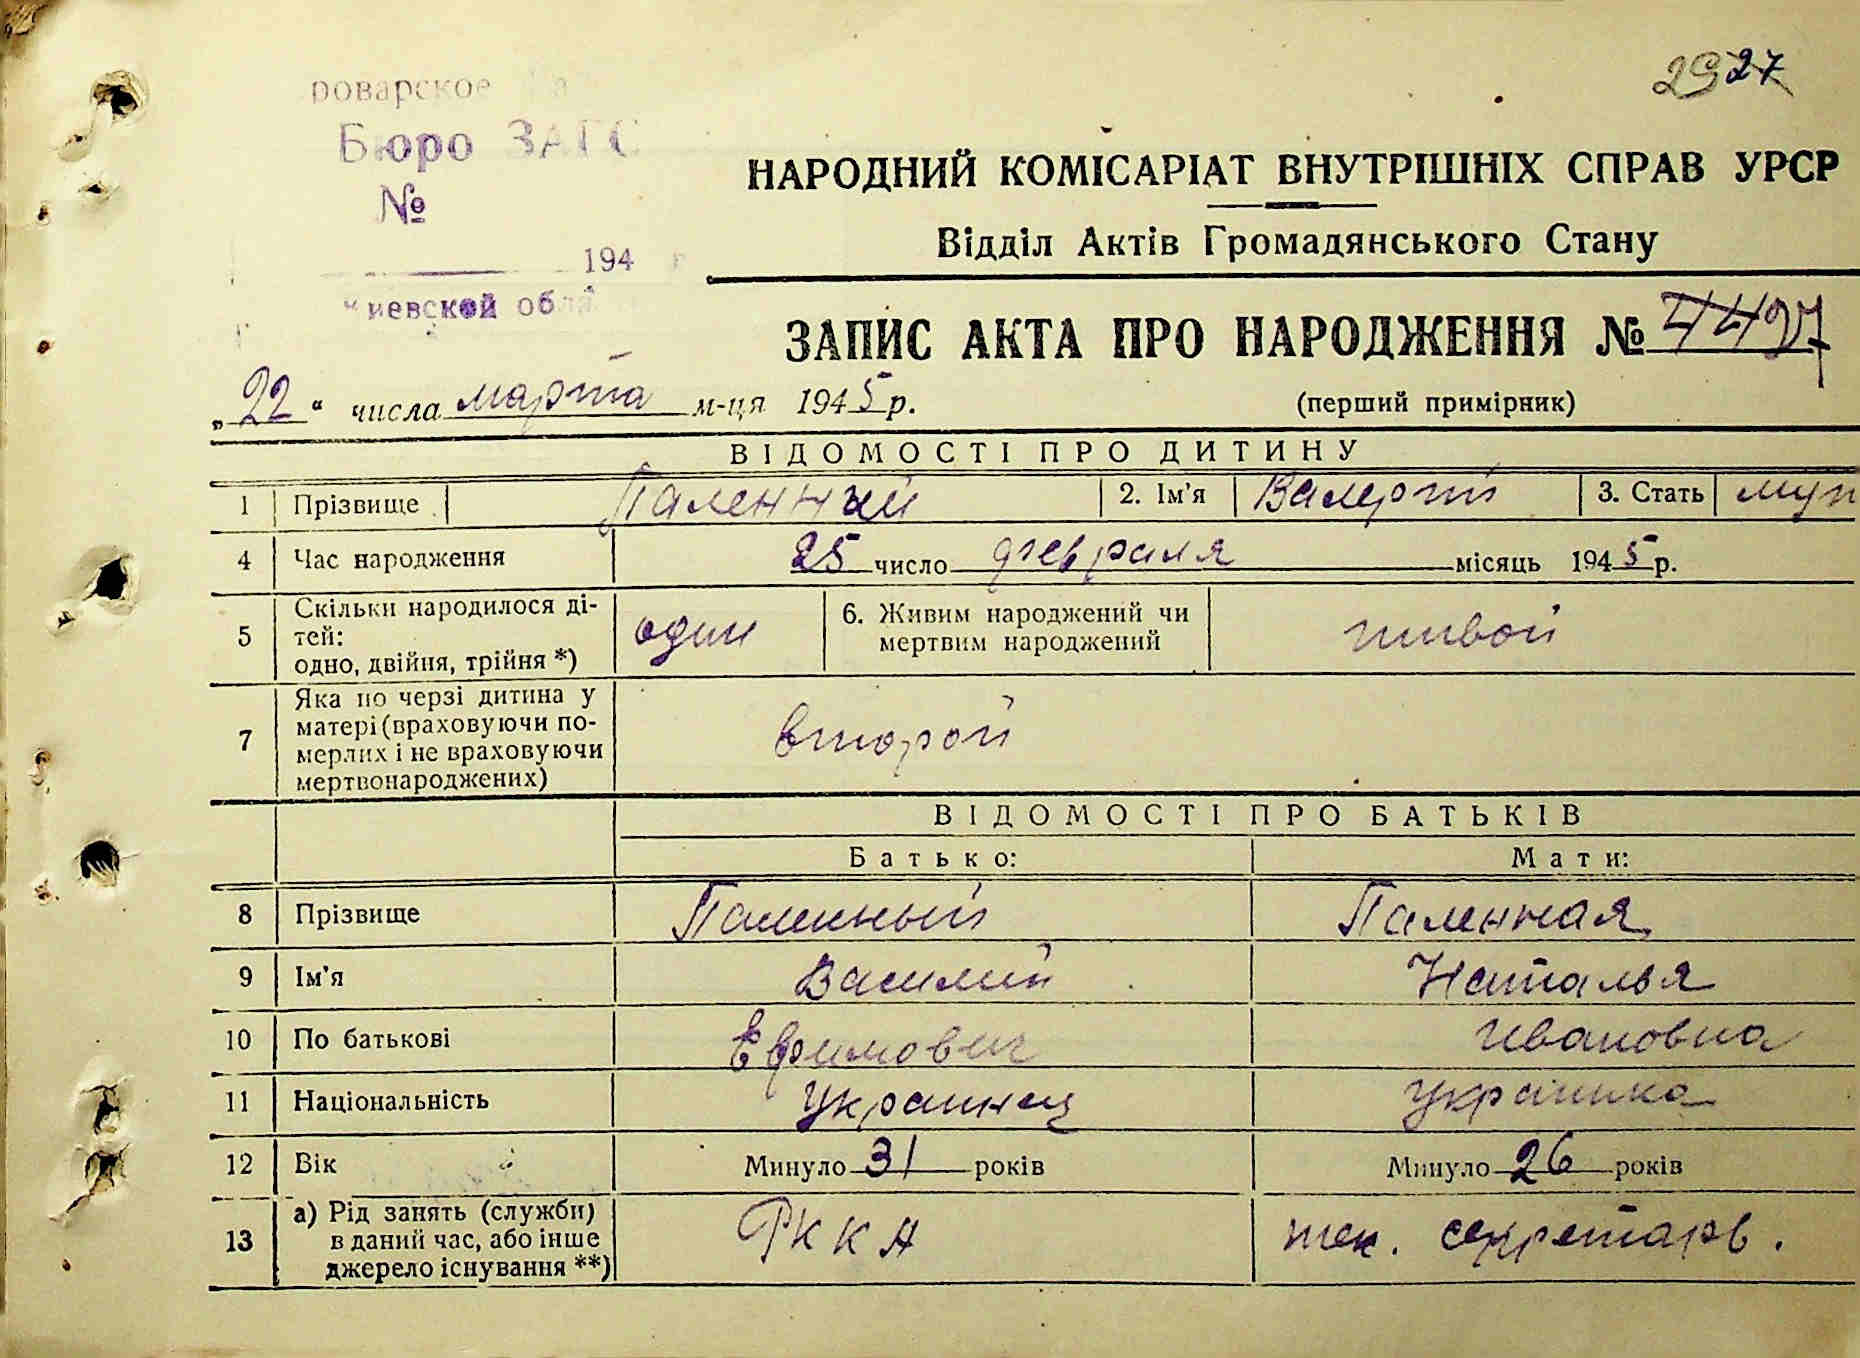 2927
роварское
Бюро ЗАГС
№
194
иевской обла
НАРОДНИЙ КОМІСАРІАТ ВНУТРІШНІХ СПРАВ УРСР
Відділ Актів Громадянського Стану
ЗАПИС АКТА ПРО НАРОДЖЕННЯ №
„22“ числа марта м-ця 1945 р.
(перший примірник)
ВІДОМОСТІ ПРО ДИТИНУ
1 Прізвище Паленный 2. Ім'я Валерий 3. Стать муж
4 Час народження 25 число февраля місяць 1945 р.
5 Скільки народилося ді-
тей:
одно, двійня, трійня *) один
6. Живим народжений чи
мертвим народжений живой
7 Яка по черзі дитина у
матері (враховуючи по-
мерлих і не враховуючи
мертвонароджених) второй
ВІДОМОСТІ ПРО БАТЬКІВ
Батько: Мати:
8 Прізвище Паленный Паленная
9 Ім'я Василий Наталья
10 По батькові Ефимович Ивановна
11 Національність украинец украинка
12 Вік Минуло 31 років Минуло 26 років
13 а) Рід занять (служби)
в даний час, або інше
джерело існування **) РККА тех. секретарь.